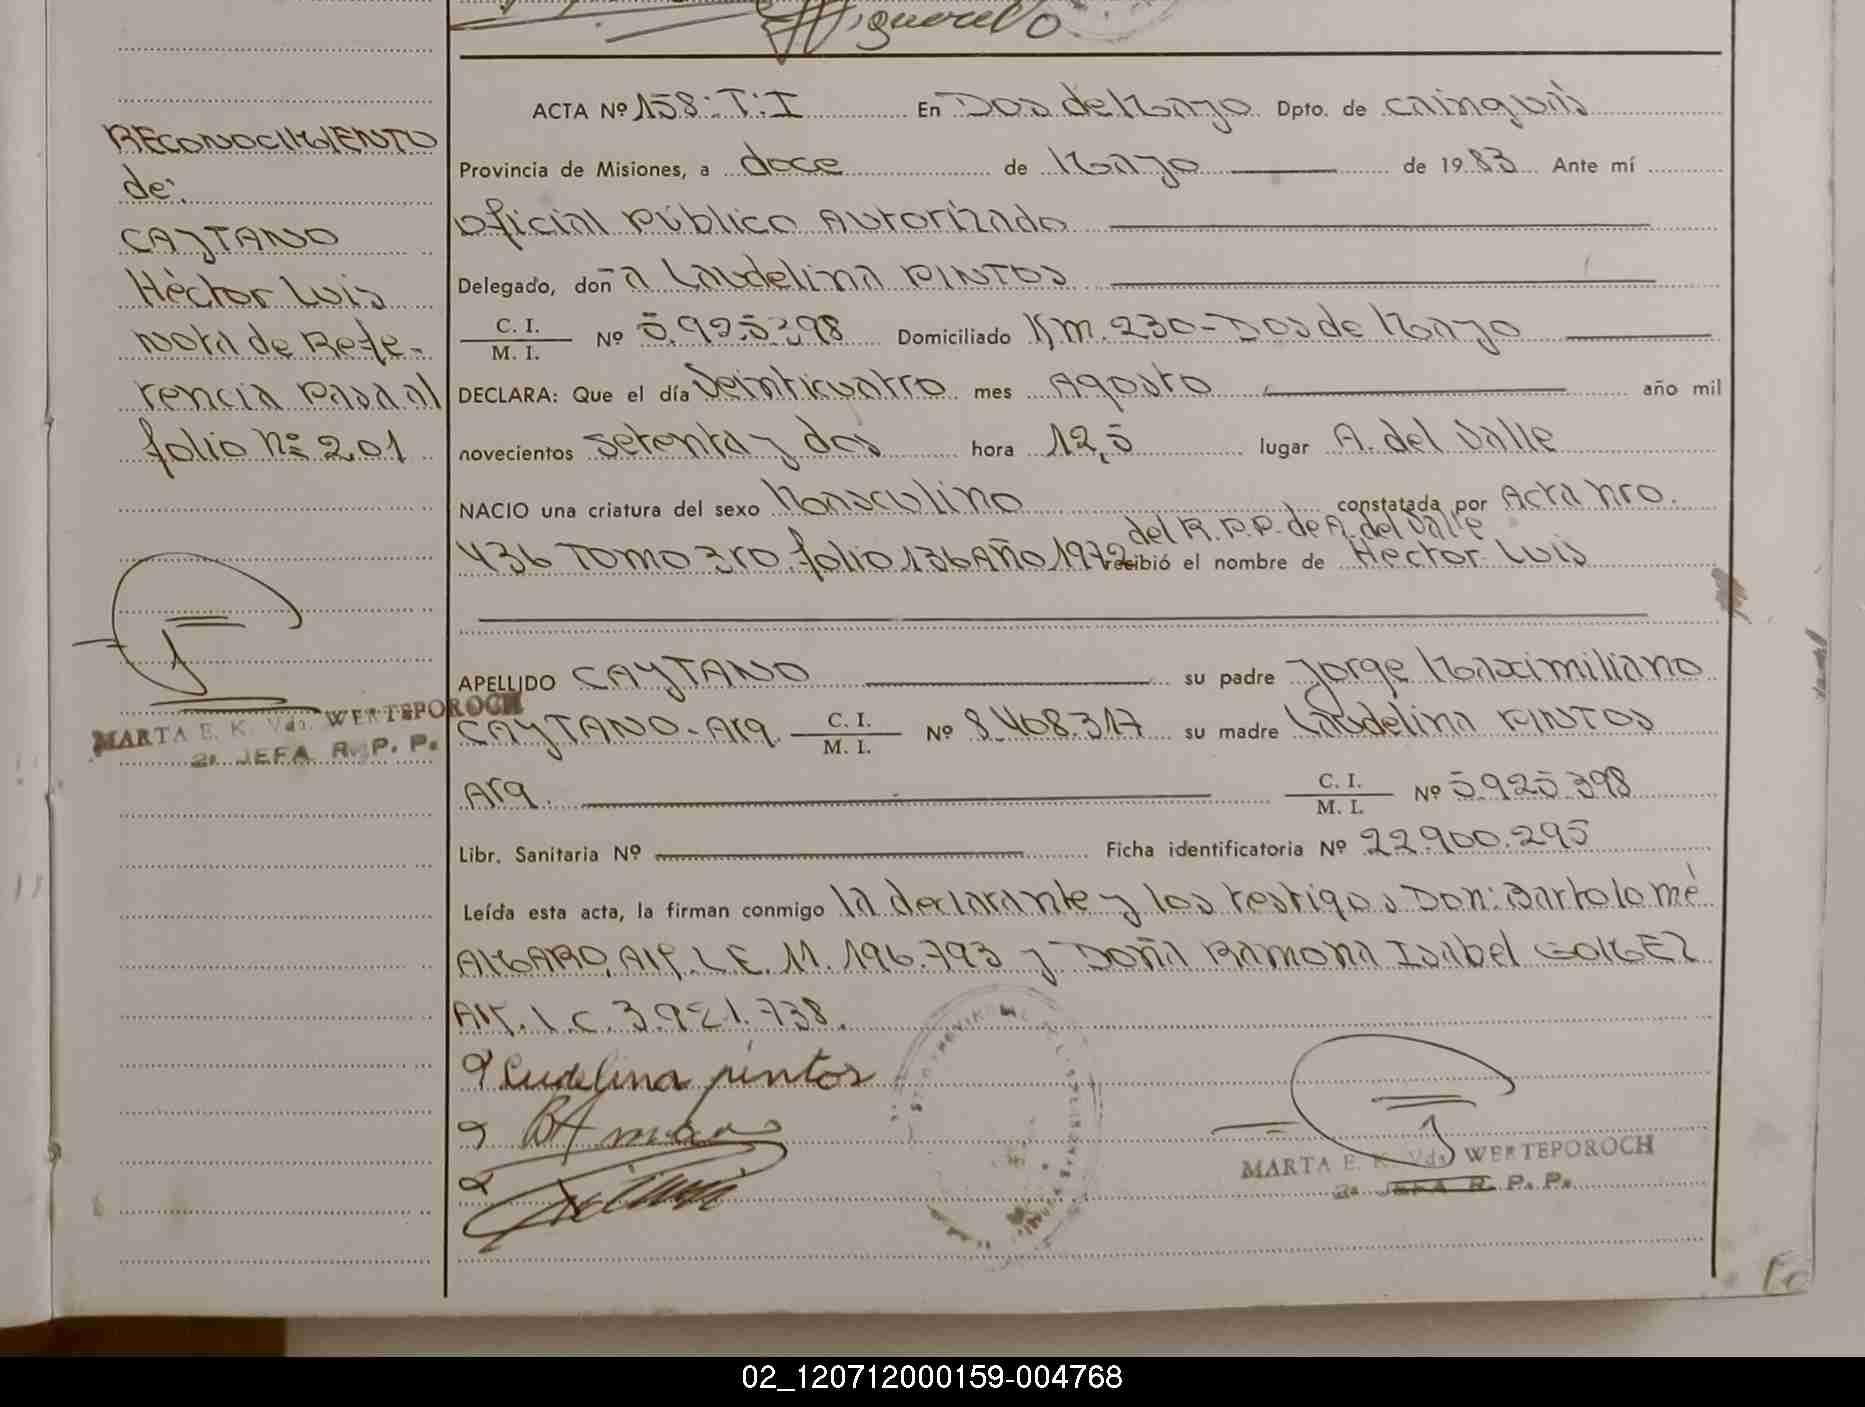 Higuerelo
RECONOCIMIENTO
de:
CAYTANO
Héctor Luis
nota de Refe-
rencia Pasa al
folio Nº 201
MARTA E. K. Vda. WERTEPOROCH
2a. JEFA R. P. P.
ACTA Nº 158:T:I En Dos de Mayo Dpto. de Cainguás
Provincia de Misiones, a doce de Mayo de 1983 Ante mí
Oficial Público Autorizado
Delegado, doña Laudelina PINTOS
C. I. / M. I. Nº 5.925.398 Domiciliado Km. 230-Dos de Mayo
DECLARA: Que el día Veinticuatro mes Agosto año mil
novecientos setenta y dos hora 12,5 lugar A. del Valle
NACIO una criatura del sexo Masculino constatada por Acta nro.
del R.P.P. de A. del Valle
436 TOMO 3ro. folio 136 Año 1972 recibió el nombre de Héctor Luis
APELLIDO CAYTANO su padre Jorge Maximiliano
CAYTANO-Arg. C. I. / M. I. Nº 8.408.317 su madre Laudelina PINTOS
Arg. C. I. / M. I. Nº 5.925.398
Libr. Sanitaria Nº Ficha identificatoria Nº 22.900.295
Leída esta acta, la firman conmigo la declarante y los testigos Don: Bartolomé
AMARO, Arg. L.E. 11.196.793 y Doña Ramona Isabel GOMEZ
Arg. L.C. 3.921.738.
Ludelina pintos
MARTA E. K. Vda. WERTEPOROCH
2a. JEFA R. P. P.
02_120712000159-004768